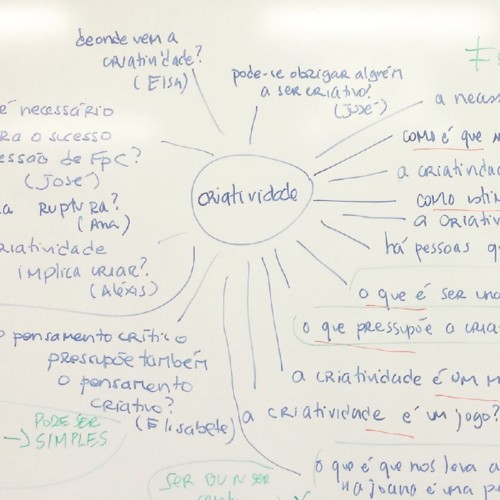 deonde vem a
criatividade?
(Elsa)
pode-se obrigar alguém
a ser criativo?
(José)
≠
é necessário
ra o sucesso
essão de FpC?
(José)
a ruptura?
(Ana)
riatividade
implica criar?
(Aléxis)
o pensamento crítico
pressupõe também
o pensamento
criativo?
(Elisabete)
PODE SER
→ SIMPLES
criatividade
a necess
como é que n
a criatividad
como
a criativ
há pessoas q
o que é ser
o que pressupõe a cria
a criatividade é um m
a criatividade é um jogo?
o que é que nos leva a
é uma p
SER OU N SER